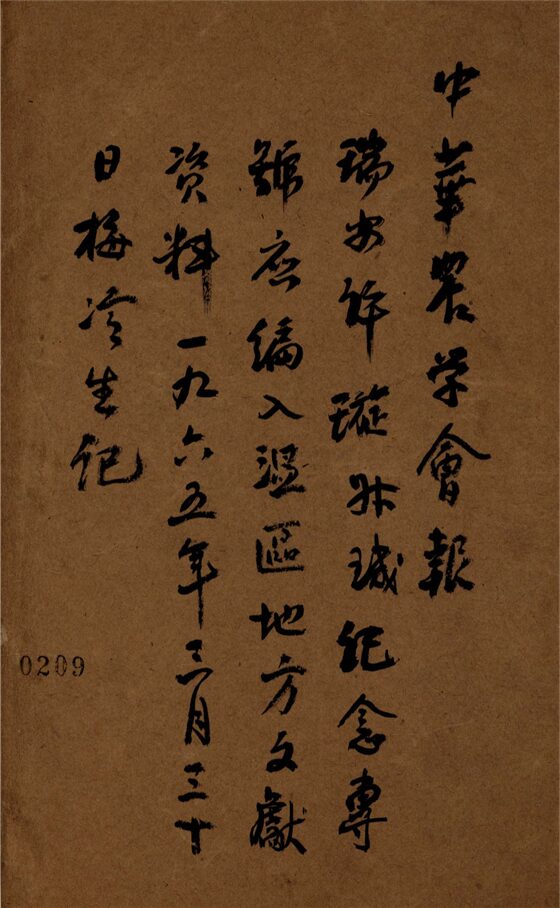 中華農学會報
瑞安許璇叔璣纪念專
號应编入温區地方文獻
资料一九六五年三月三十
日梅冷生记
0209